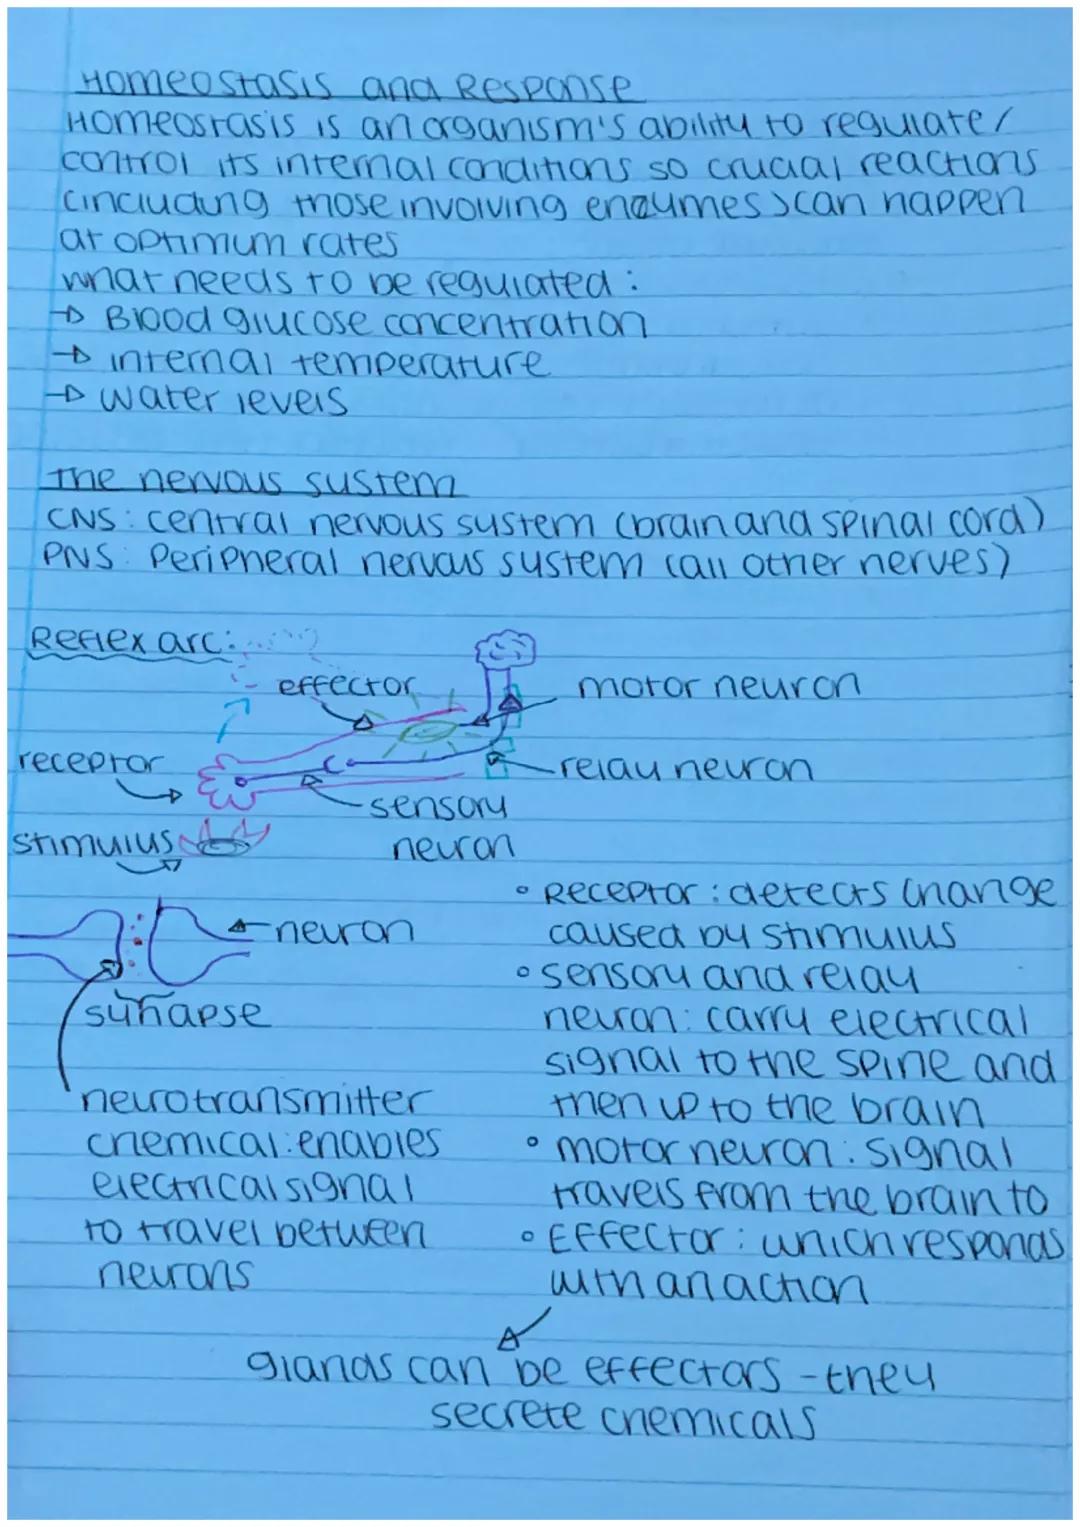 Homeostasis and Response
Homeostasis is an organism's ability to regulate/
control its internal conditions so crucial reactions
(including those involving enzymes) can happen
at optimum rates
what needs to be regulated:
→ Blood glucose concentration
→ internal temperature
→ water levels
The nervous system
CNS: central nervous system (brain and spinal cord)
PNS: Peripheral nervous system (all other nerves)
Reflex arc:
effector
motor neuron
receptor
relay neuron
sensory
neuron
stimulus
neuron
synapse
neurotransmitter
chemical: enables
electrical signal
to travel between
neurons
• Receptor: detects change
caused by stimulus
• sensory and relay
neuron: carry electrical
signal to the spine and
then up to the brain
• motor neuron: signal
travels from the brain to
• Effector: which responds
with an action
glands can be effectors - they
secrete chemicals